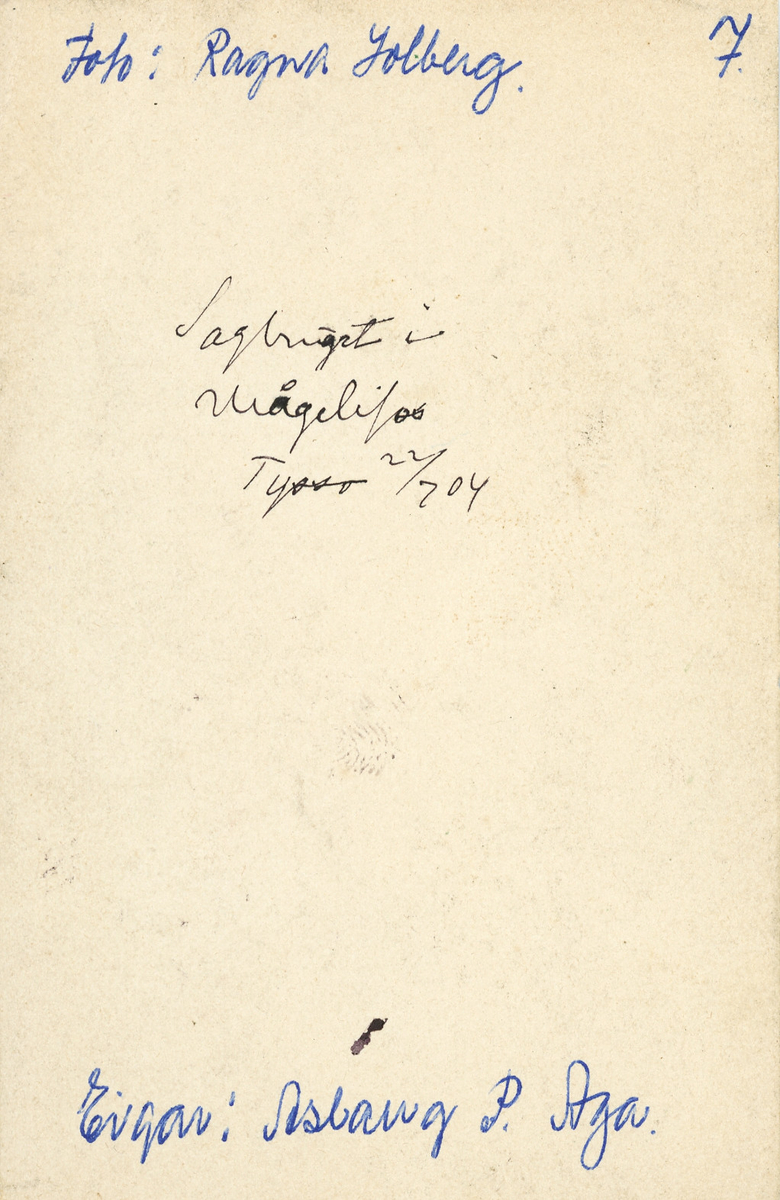 Foto: Ragna Solberg. 7.
Sagbruget i
Mågelifos
Tysso 22/7 04
Eigar: Aslaug P. Aga.